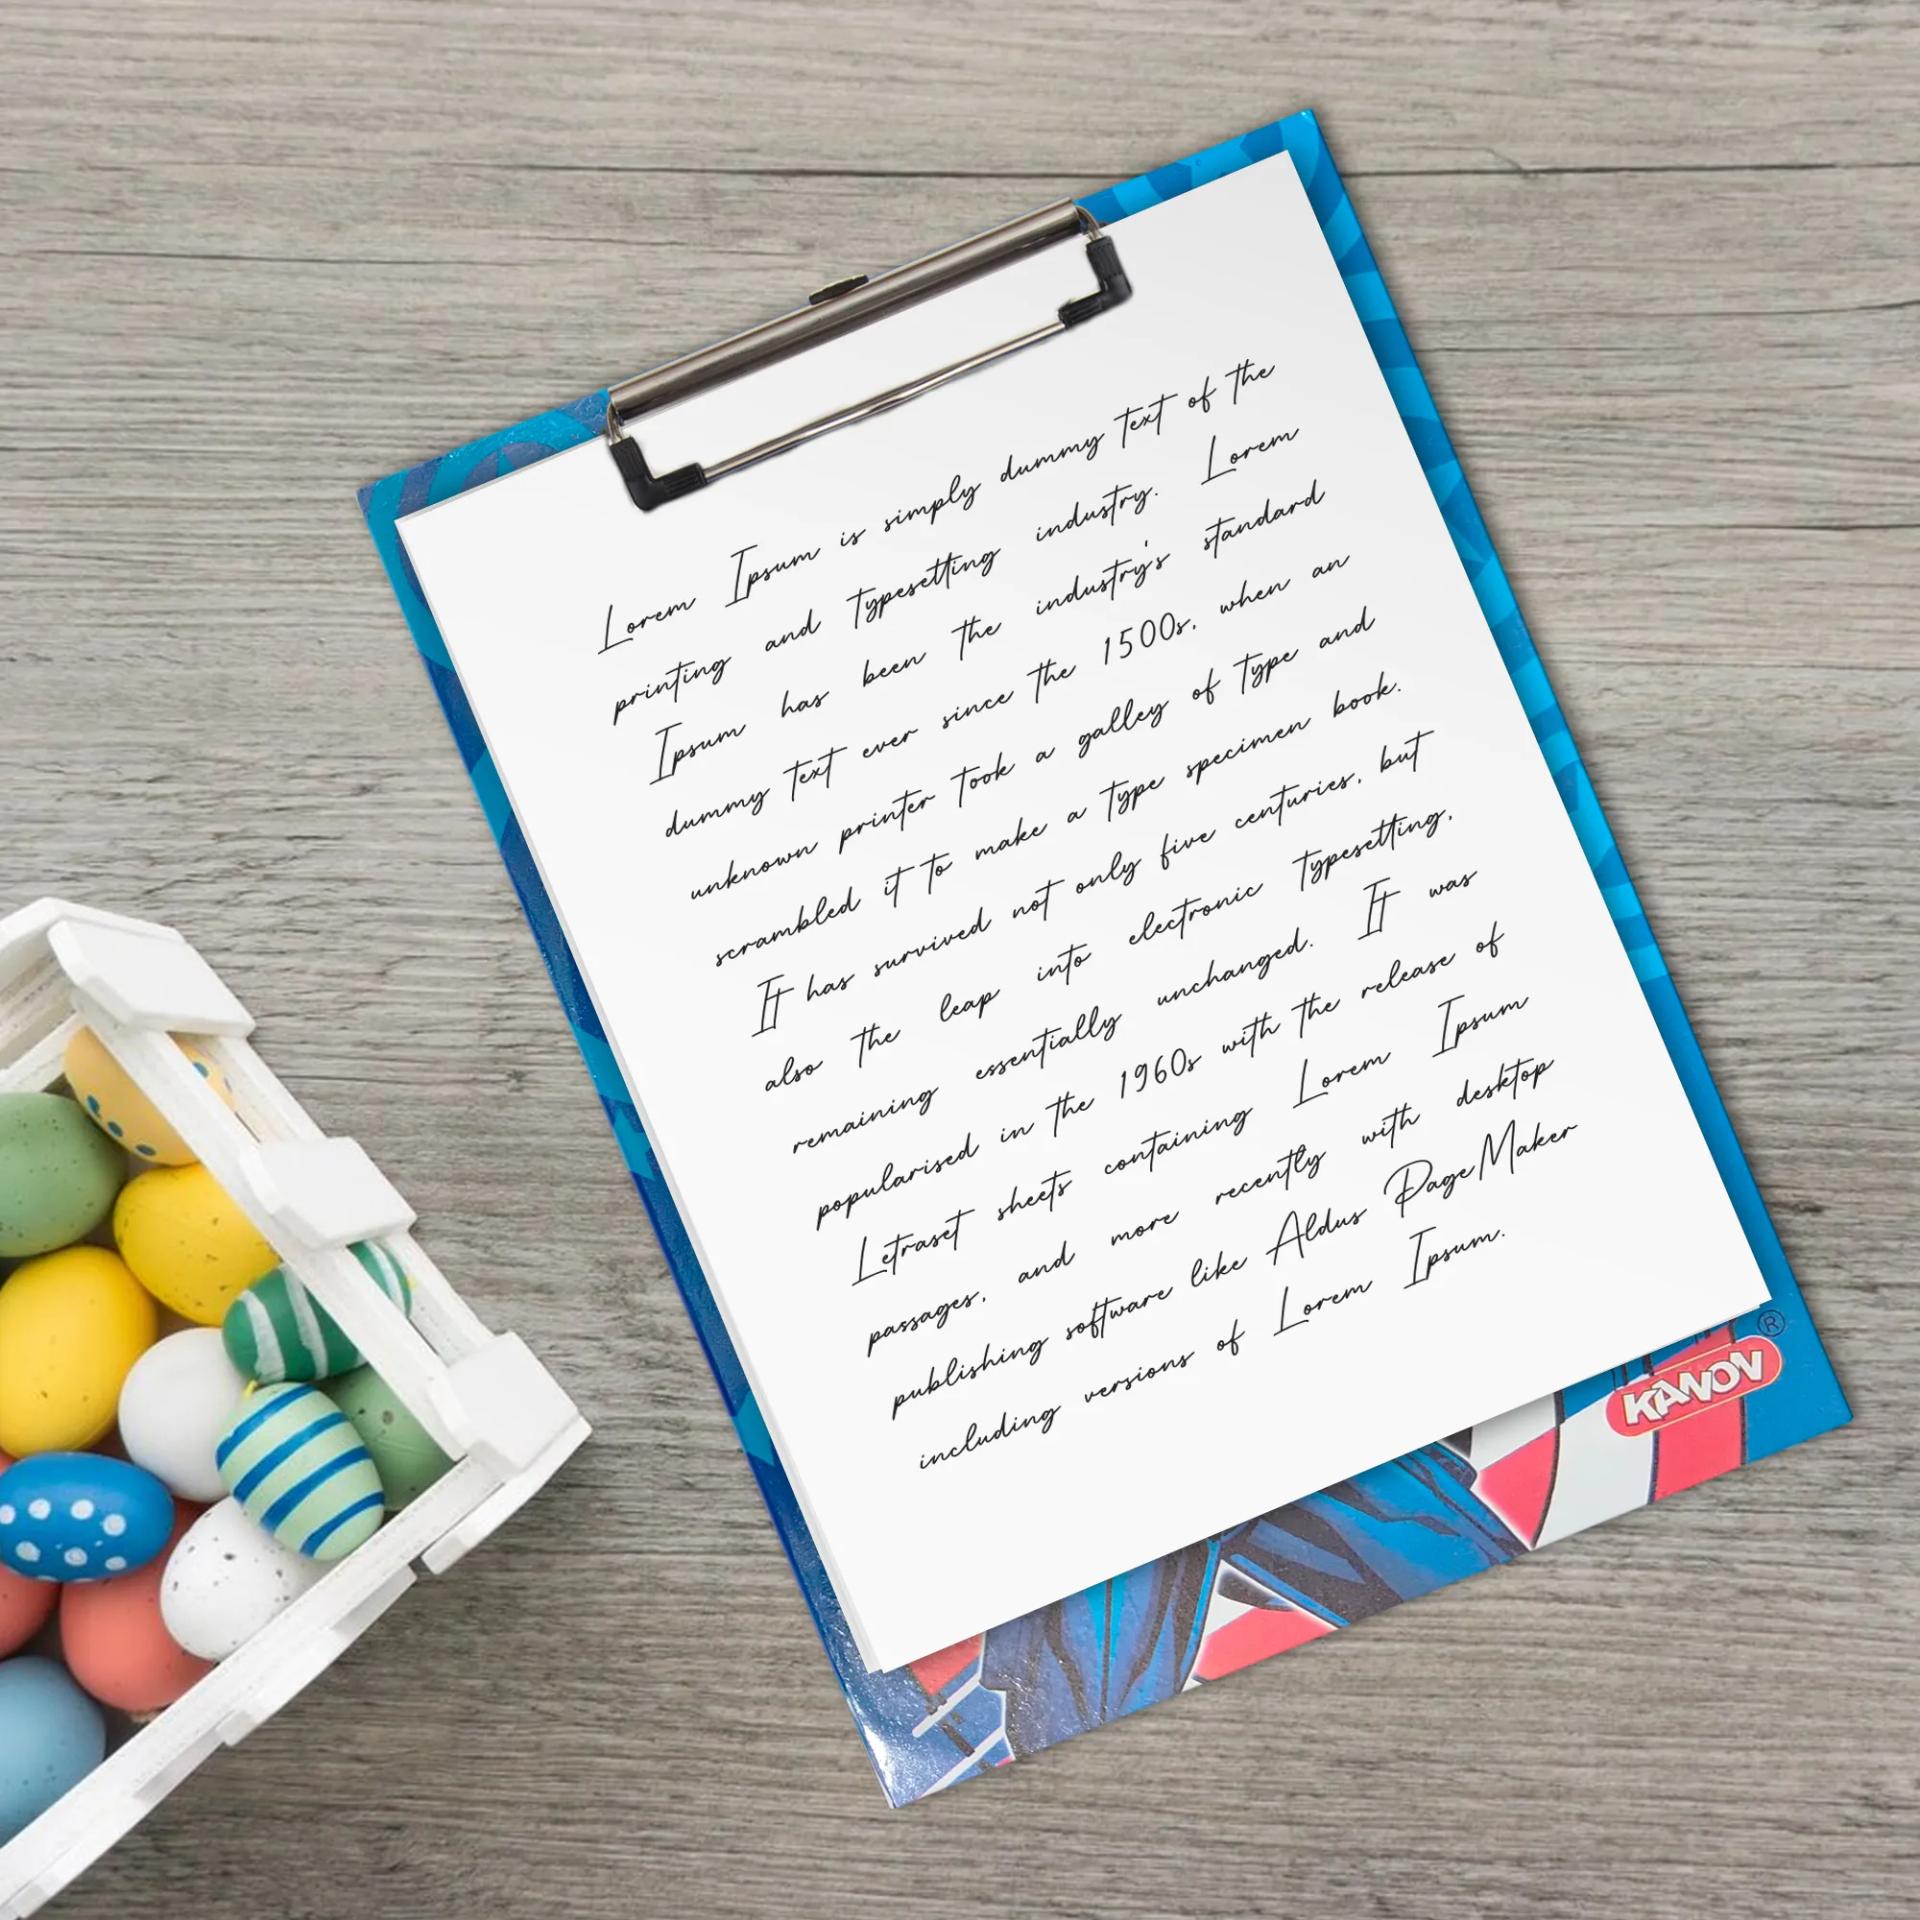 Lorem Ipsum is simply dummy text of the
printing and typesetting industry. Lorem
Ipsum has been the industry's standard
dummy text ever since the 1500s, when an
unknown printer took a galley of type and
scrambled it to make a type specimen book.
It has survived not only five centuries, but
also the leap into electronic typesetting,
remaining essentially unchanged. It was
popularised in the 1960s with the release of
Letraset sheets containing Lorem Ipsum
passages, and more recently with desktop
publishing software like Aldus PageMaker
including versions of Lorem Ipsum.
KANOV ®